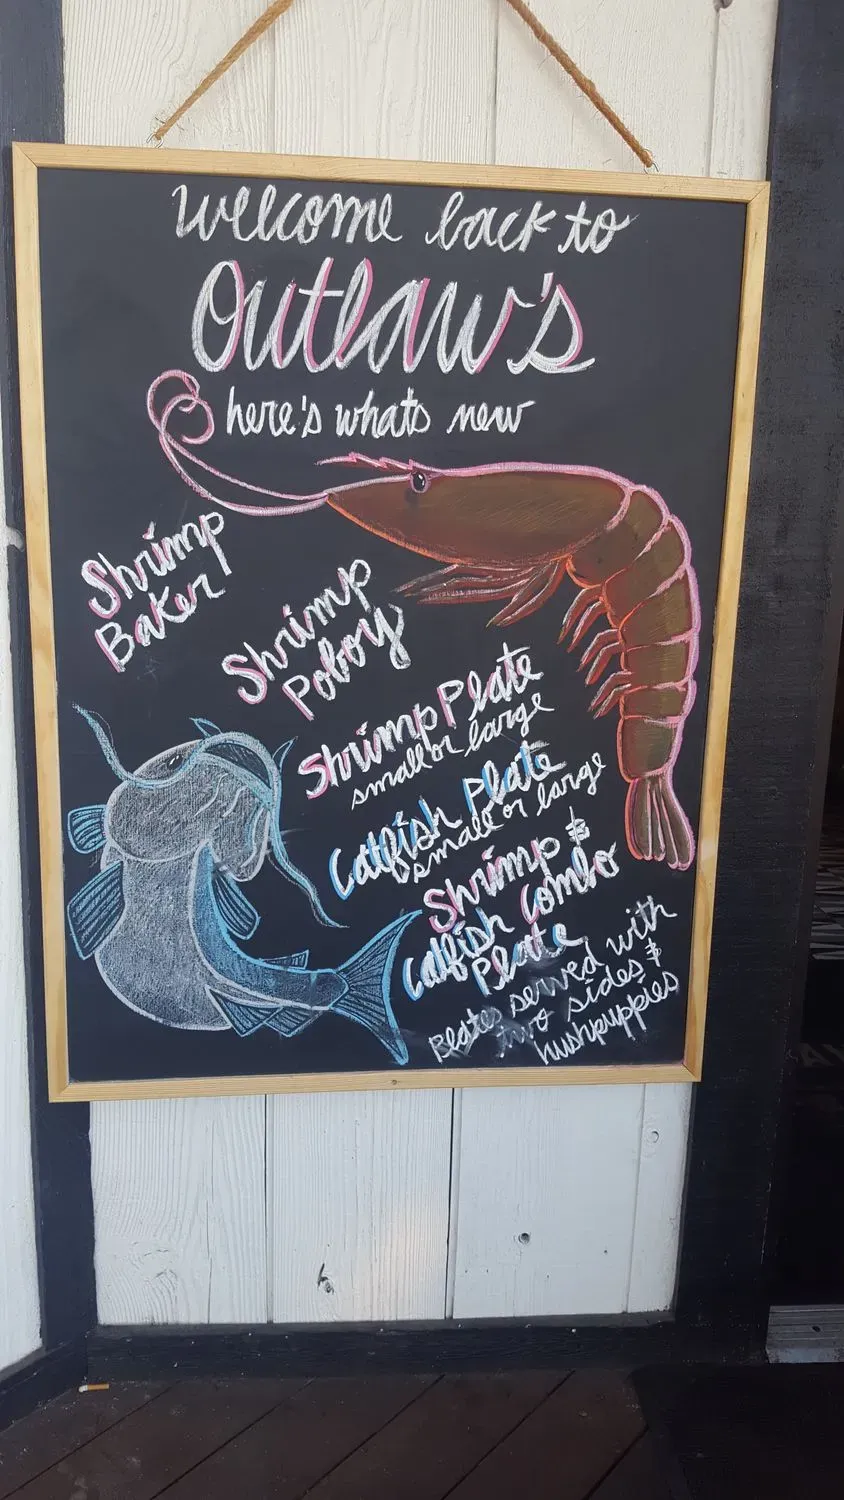 Welcome back to
Outlaw's
here's whats new
Shrimp
Baker
Shrimp
Poboy
Shrimp Plate
small or large
Catfish Plate
small or large
Shrimp &
Catfish Combo
Plate
served with
two sides &
hushpuppies